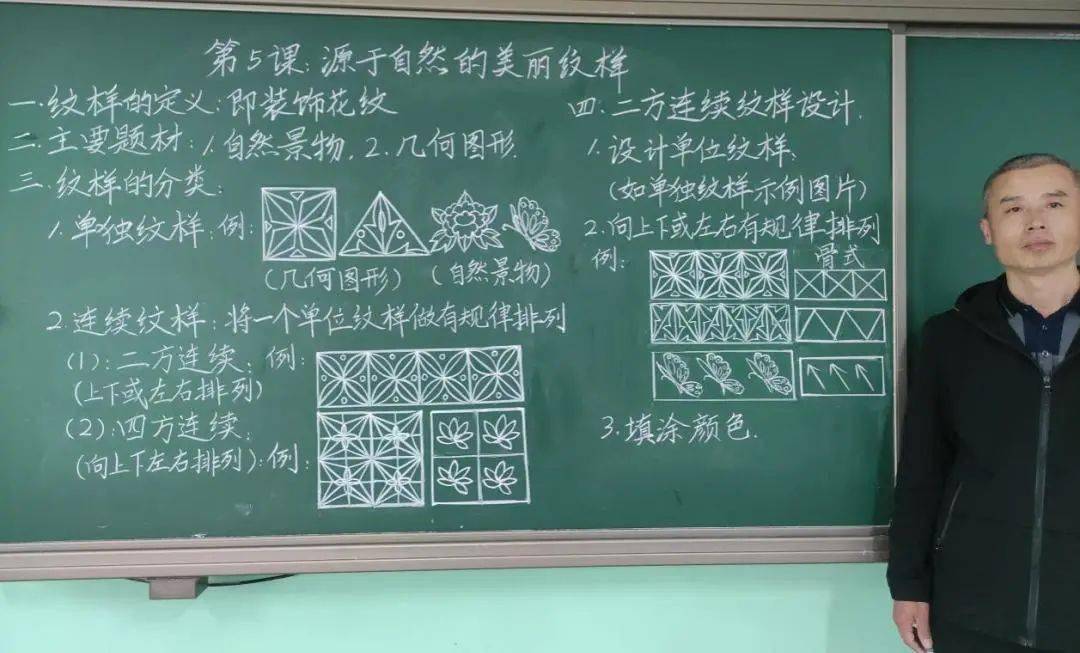 第5课:源于自然的美丽纹样
一.纹样的定义:即装饰花纹
二.主要题材:1.自然景物.2.几何图形.
三.纹样的分类:
1.单独纹样:例:
(几何图形)(自然景物)
2.连续纹样:将一个单位纹样做有规律排列
(1):二方连续:例:
(上下或左右排列)
(2):四方连续:
(向上下左右排列):例:
四.二方连续纹样设计.
1.设计单位纹样:
(如单独纹样示例图片)
2.向上下或左右有规律排列
例:
骨式
3.填涂颜色.